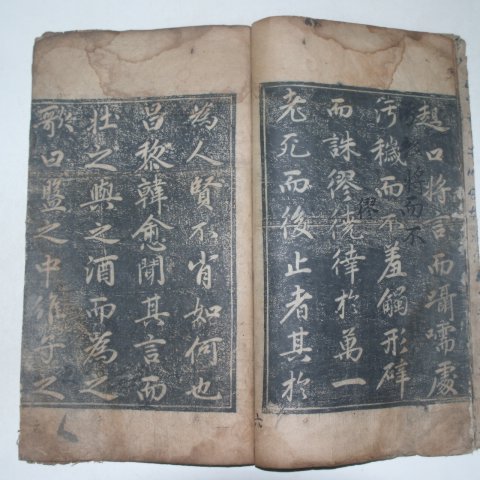 趄口將言而躡嚅處
污穢而不羞觸形辟
而誅繆繞倖於萬一
老死而後止者其於
為人賢不肖如何也
昌黎韓愈聞其言而
壯之與之酒而為之
歌曰盤之中維子之
將而不